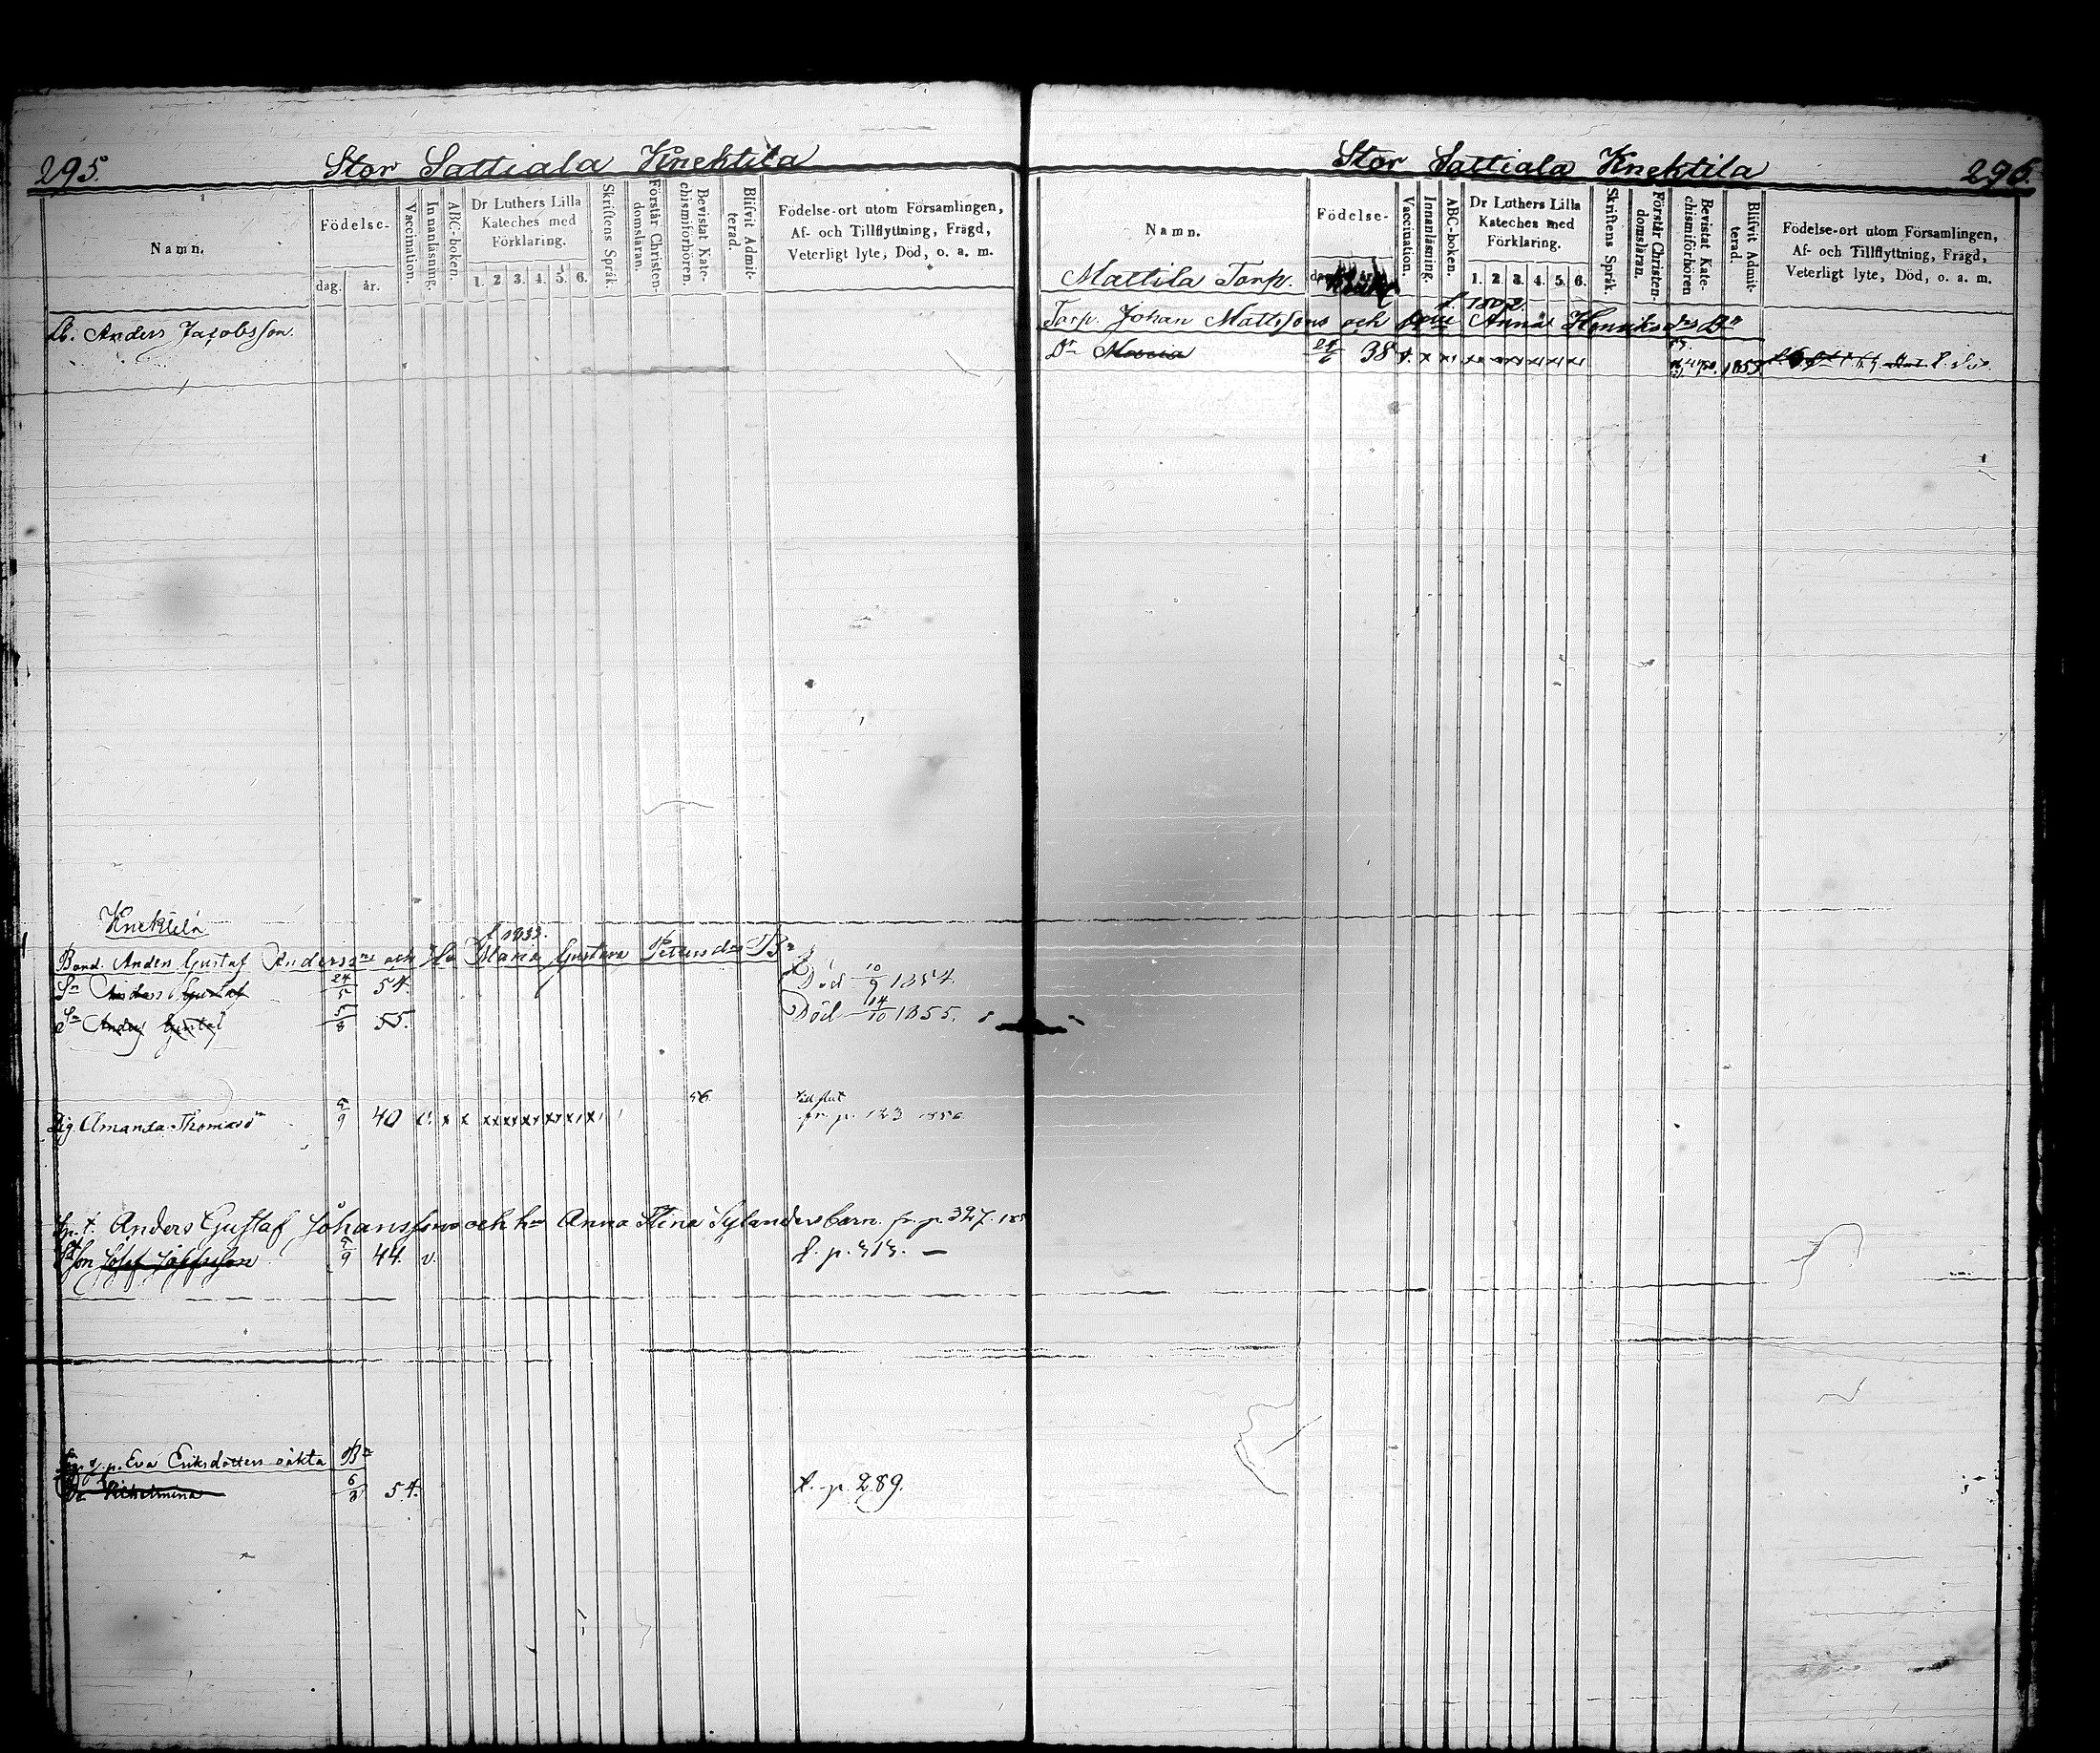 295.
Stor Sattiala Knektila
Namn.
Födelse-
dag. år.
Vaccination.
Innanläsning.
ABC-boken.
Dr Luthers Lilla
Kateches med
Förklaring.
1. 2. 3. 4. 5. 6.
Skriftens Språk.
Förstår Christen-
domsläran.
Bevistat Kate-
chismiförhören.
Blifvit Admit-
terad.
Födelse-ort utom Församlingen,
Af- och Tillflyttning, Frägd,
Veterligt lyte, Död, o. a. m.
Anders Jacobsson.
Knektila
f 1833.
Bond. Anders Gustaf Anderssons och Maria Gustava Petters dr Bn
Sn Anders Gustaf 24/5 54. Död 10/9 1854.
Sn Anders Gustaf 5/8 55. Död 14/10 1855.
Pig. Amanda Thomasd 5/9 40 v. x x xx xx xx xx xx x 56. fr. p. 123 1856
Anders Gustaf Johanssons och hu Anna Stina Sylanders barn. fr. p. 327.
Son 5/9 44. v. f. p. 313. —
Eva Eriksdotters oäkta Bn
Vilhelmina 6/3 54. f. p. 289.
Stor Sattiala Knektila
296.
Namn.
Födelse-
Vaccination.
Innanläsning.
ABC-boken.
Dr Luthers Lilla
Kateches med
Förklaring.
1. 2. 3. 4. 5. 6.
Skriftens Språk.
Förstår Christen-
domsläran.
Bevistat Kate-
chismiförhören
Blifvit Admit-
terad.
Födelse-ort utom Församlingen,
Af- och Tillflyttning, Frägd,
Veterligt lyte, Död, o. a. m.
Mattila Torp.
f. 1802.
Torp. Johan Mattssons och Anna Henriks drs Bn
Dr Maria 24/6 38 v. x x xx xx xx xx xx 1855.